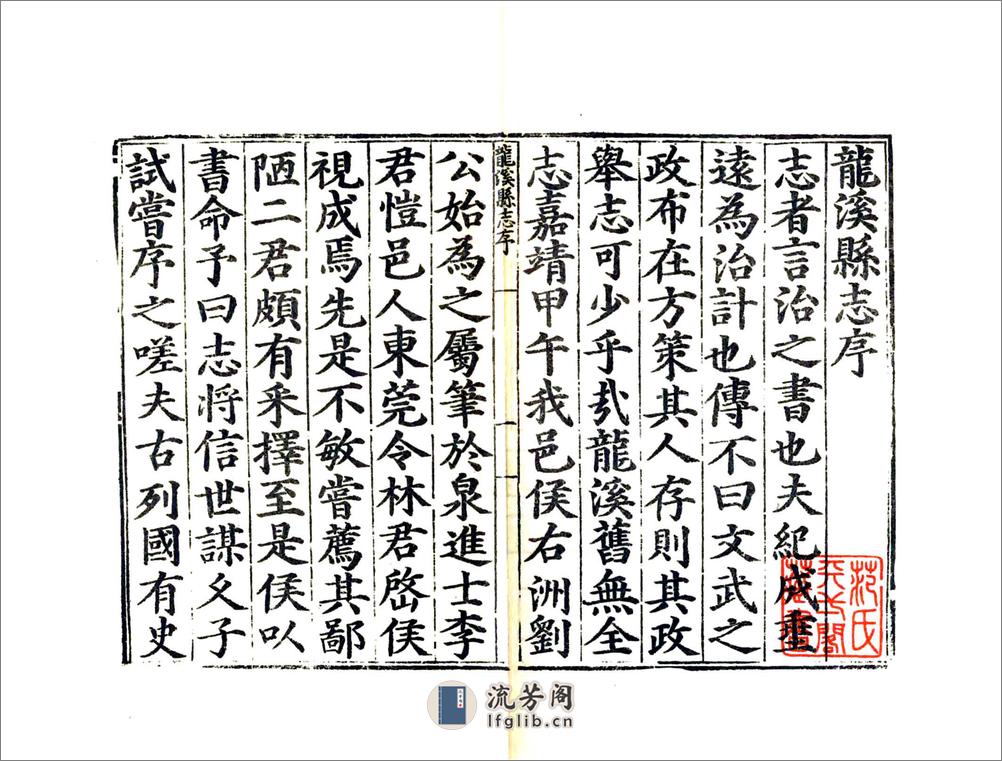 龍溪縣志序
志者言治之書也夫紀成垂
遠為治計也傳不曰文武之
政布在方策其人存則其政
舉志可少乎哉龍溪舊無全
志嘉靖甲午我邑侯右洲劉
龍溪縣志序
公始為之屬筆於泉進士李
君愷邑人東莞令林君啓侯
視成焉先是不敏嘗薦其鄙
陋二君頗有采擇至是侯以
書命予曰志將信世謀久子
試嘗序之嗟夫古列國有史
范氏天一閣藏書
流芳阁
lfglib.cn